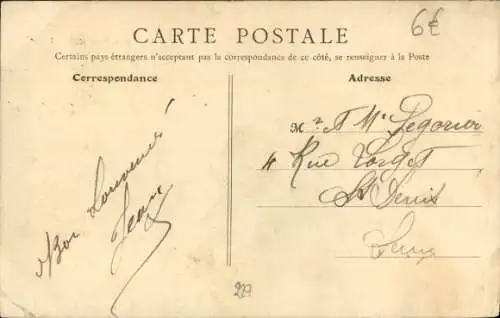 6€
CARTE POSTALE
Certains pays étrangers n'acceptant pas la correspondance de ce côté, se renseigner à la Poste
Correspondance
Adresse
Bon Souvenir
Jean
Mr et Me Legorier
4 Rue
St Denis
Seine
229